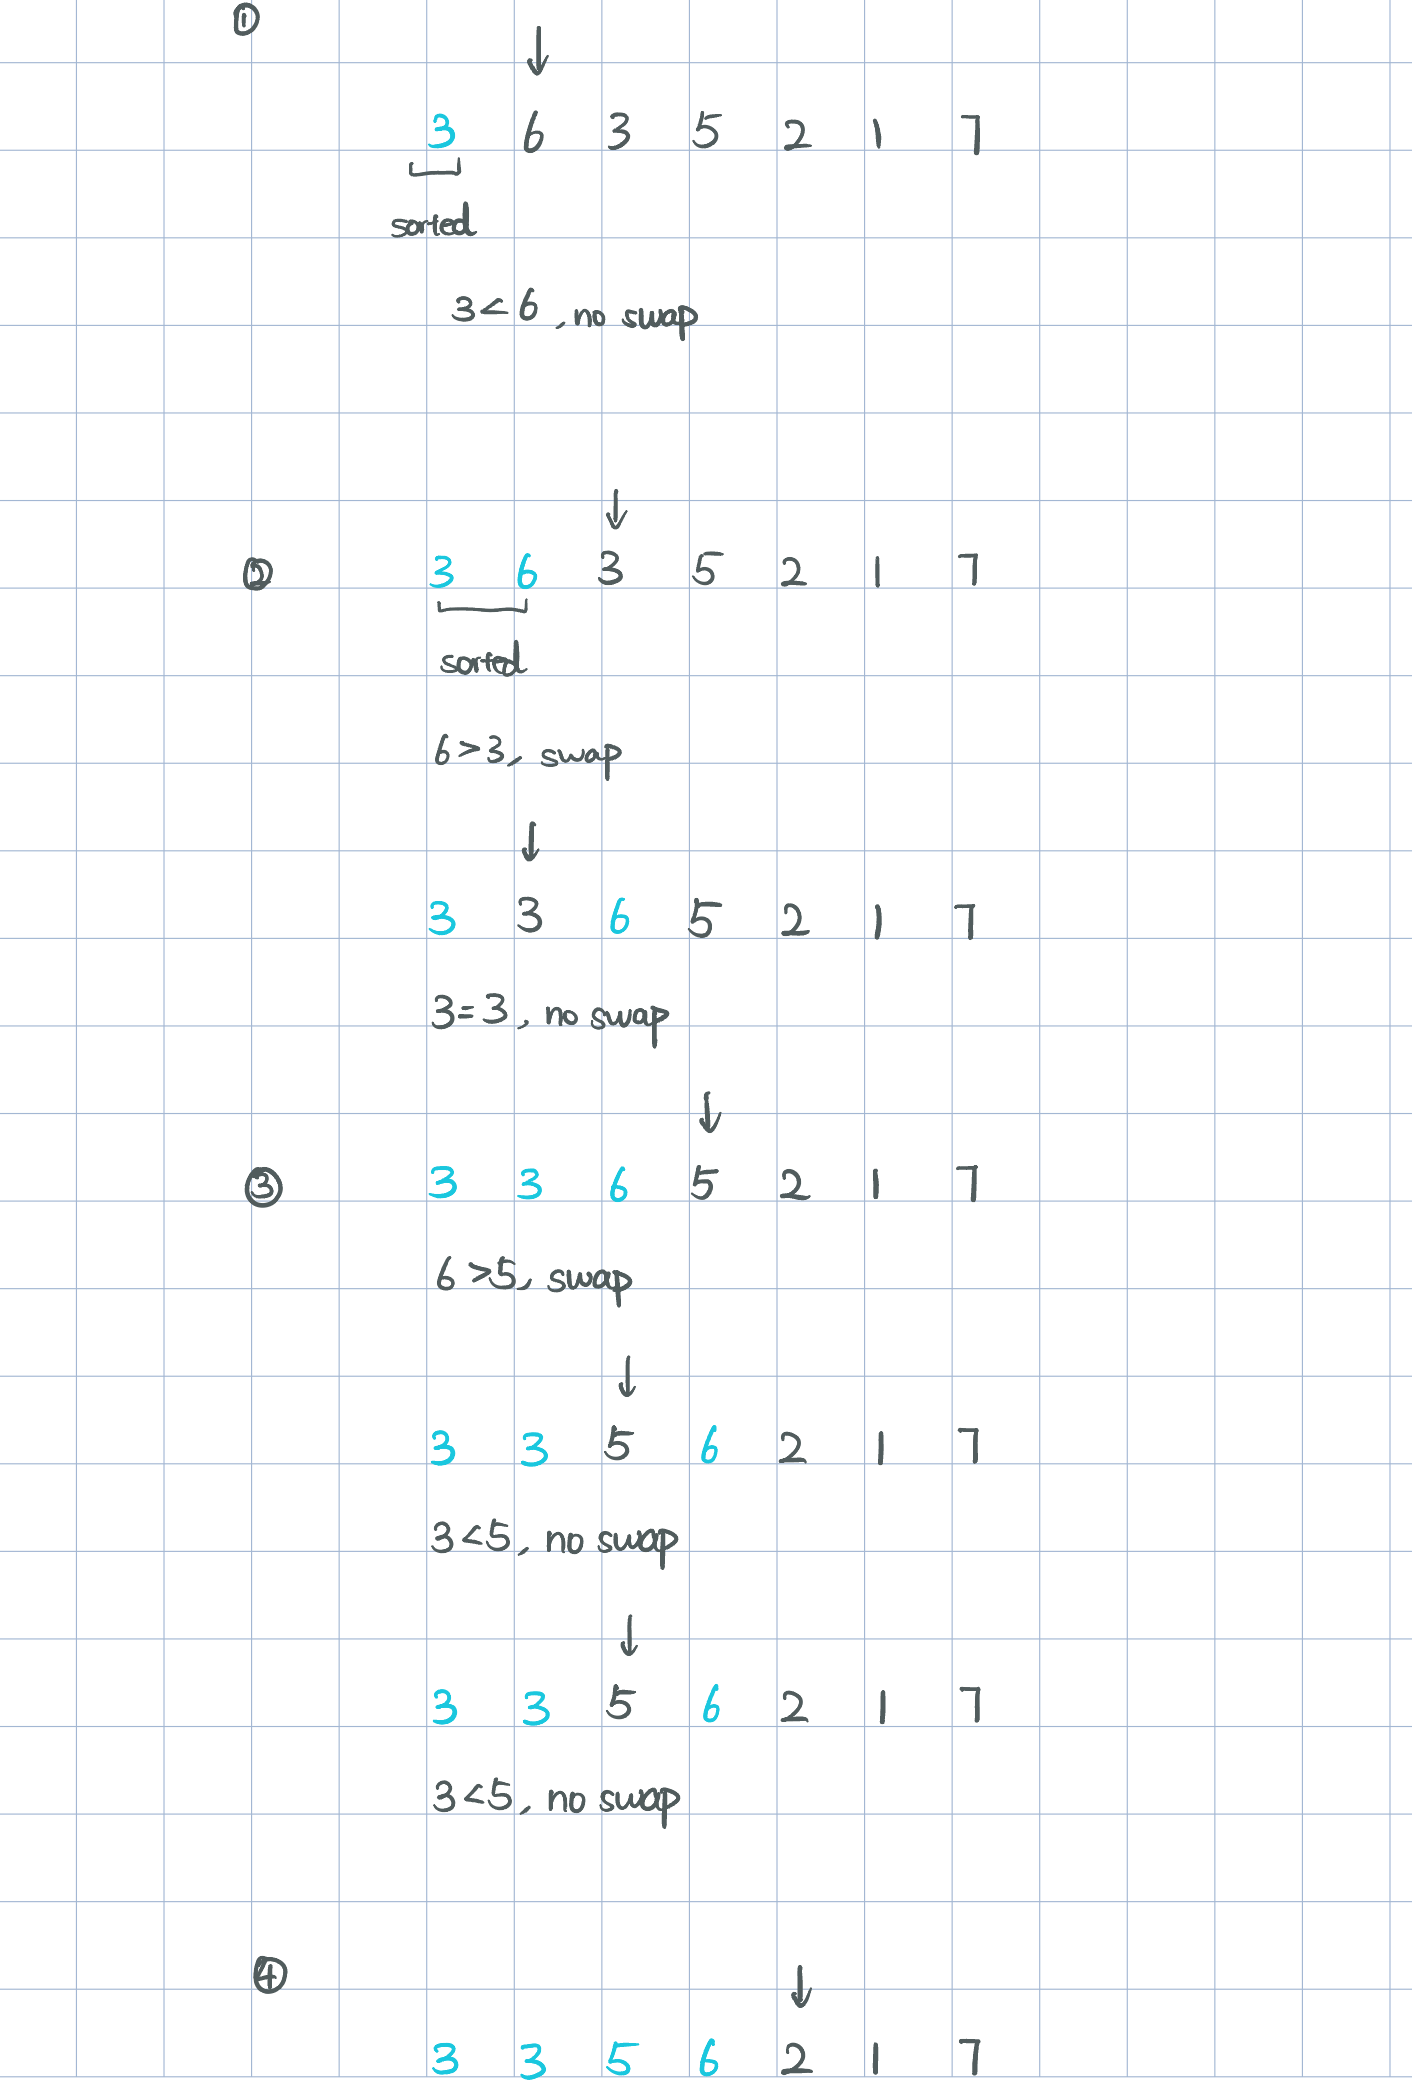 ①
3 6 3 5 2 1 7
sorted
3<6, no swap
② 3 6 3 5 2 1 7
sorted
6>3, swap
3 3 6 5 2 1 7
3=3, no swap
③ 3 3 6 5 2 1 7
6>5, swap
3 3 5 6 2 1 7
3<5, no swap
3 3 5 6 2 1 7
3<5, no swap
④
3 3 5 6 2 1 7